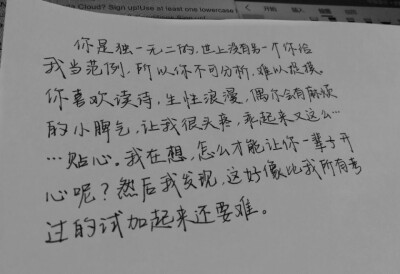 Cloud? Sign up!Use at least one lowercase
你是独一无二的,世上没有另一个你给
我当范例,所以你不可分析,难以捉摸。
你喜欢读诗,生性浪漫,偶尔会有麻烦
的小脾气,让我很头疼,乖起来又这么…
…贴心。我在想,怎么才能让你一辈子开
心呢?然后我发现,这好像比我所有考
过的试加起来还要难。